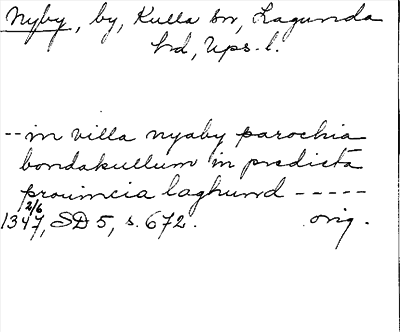 Nyby, by, Kulla sn, Lagunda
hd, Ups. l.
-- in villa nyaby parochia
bondakullum in predicta
prouincia laghund -----
2/6
1347, SD 5, s. 672. orig.